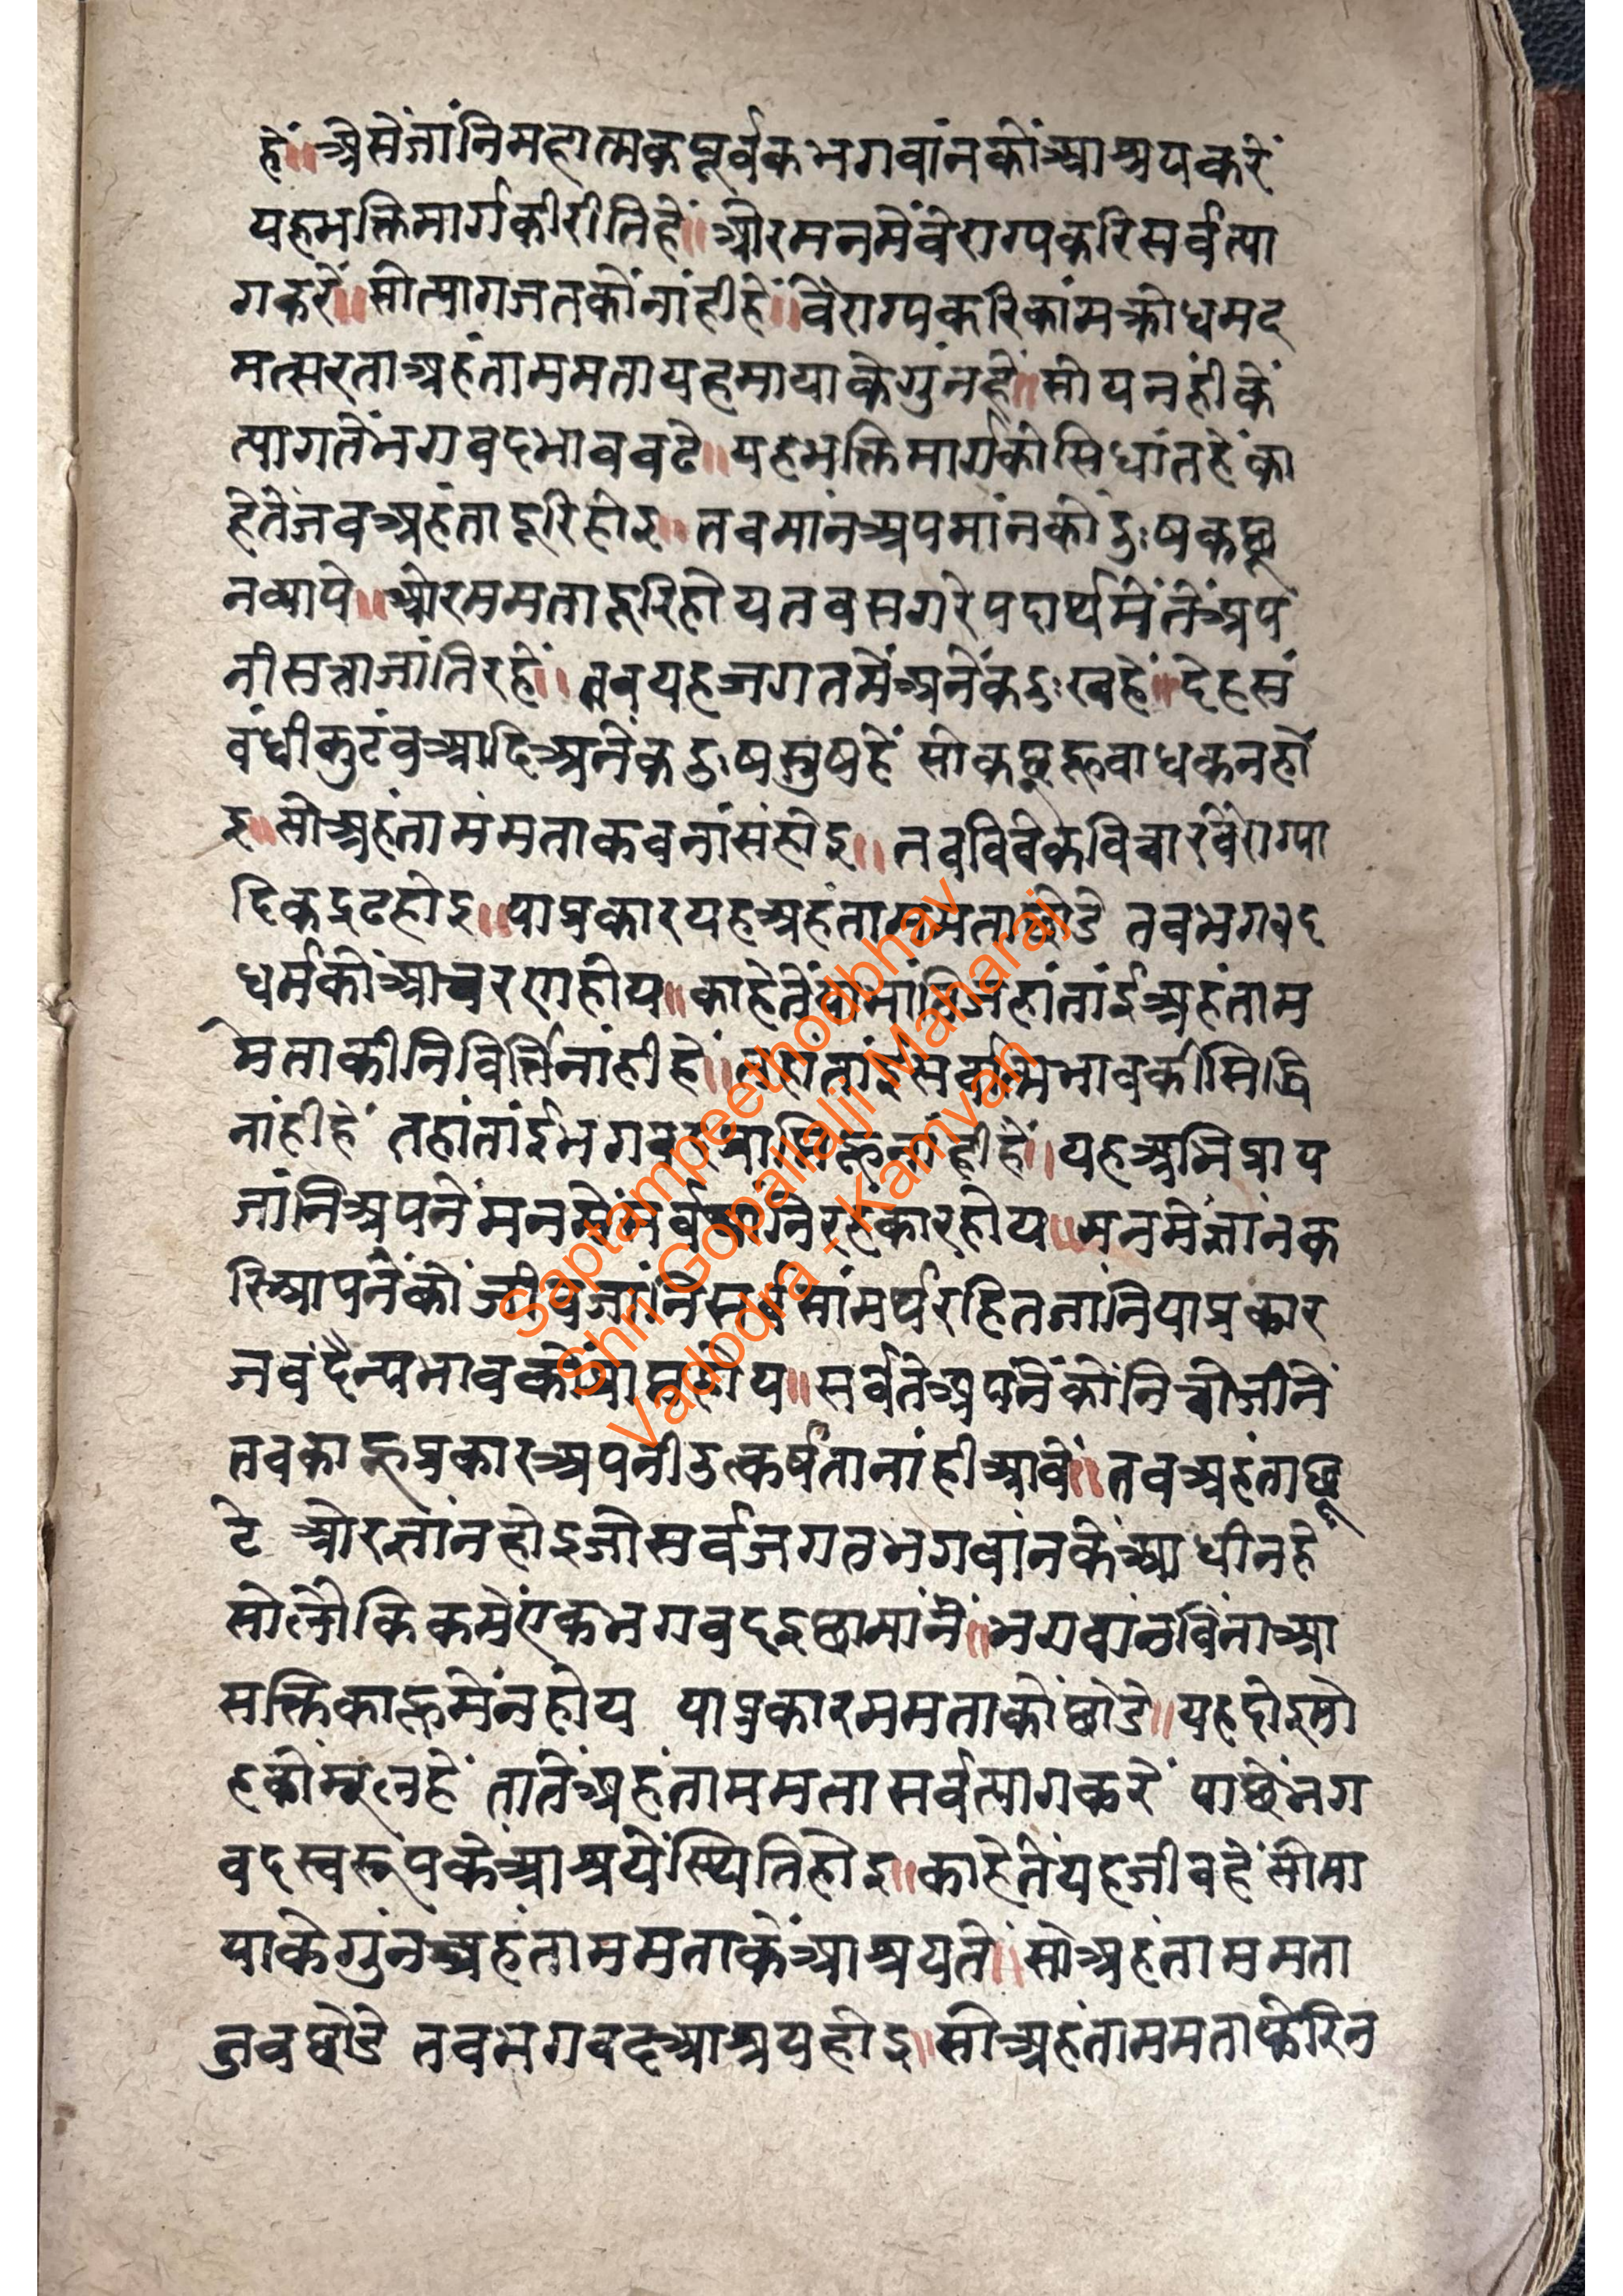 हें॥ अैसेंजांनिमहात्मकपूर्वकभगवांनकोंआश्रयकरें
यहभक्तिमार्गकीरीतिहें॥ ओरमनमेंवेराग्यकरिसर्वत्या
गकरें॥ सोत्यागजतकोंनांहीहें॥ वेंराग्यकरिकांमक्रोधमद
मत्सरताअहंताममतायहमायाकेगुंनहें॥ सोयनहीकें
त्यागतेंभगवदभाववढे॥ यहभक्तिमार्गकोसिधांतहेंका
हेतेंजवअहंतादूरिहोइ॥ तवमांनअपमांनकोदुःषकछू
नव्यापे॥ ओरममतादूरिहोयतवसगरेपदार्थमेंतेंअप
नीसत्ताजांतिरहें॥ तवयहजगतमेंअनेंकदुःखहें॥ देहसं
वंधीकुटंवआदिअनेंकदुःषसुषहें सोकछूहूवाधकनहों
इ॥ सोअहंतामंमताकवनांसंहोइ॥ तवविवेकविचारवेंराग्या
दिकद्रढहोइ॥ याप्रकारयहअहंताममताछोडे तवभगवद
धर्मकोंआचरणहोय॥ काहेतें जहांतांईअहंताम
मताकीनिवित्तिनांहीहें॥ तहांतांईसर्वात्मभावकीसिद्धि
नांहीहें तहांतांईभगवद हूनांहीहें॥ यहअभिप्राय
जांनिअपनेंमनमें निरहंकारहोय॥ मनमेंज्ञांनक
रिआपनेंकों जीवजांनिसर्वसांमर्थरहितजांनियाप्रकार
जवदैन्यभावकों होय॥ सर्वतेंअपनेंकोंनिचोजांनें
तवकाहूप्रकारअपनीउत्कर्षतानांहीआवें॥ तवअहंताछू
टे ओरज्ञांनहोइजोसर्वजगतभगवांनकेंआधीनहें
सोलौकिकमेंएंकभगवदइछामांनें॥ भगवांनविंनाआ
सक्तिकाहूमेंनहोय याप्रकारममताकोंछोडे॥ यहदोइमो
हकोंमूलहें तातेंअहंताममतासर्वत्यागकरें पाछेंभग
वदस्वरूपकेआश्रयेंस्थितिहोइ॥ काहेतेंयहजीवहें सोमा
याकेगुंनअहंताममताकेंआश्रयतें॥ सोअहंताममता
जवछोडे तवभगवदआश्रयहोइ॥ सोअहंताममताफेरिन
Saptampeethodbhav
Shri Gopallalji Maharaj
Vadodra - Kamvan